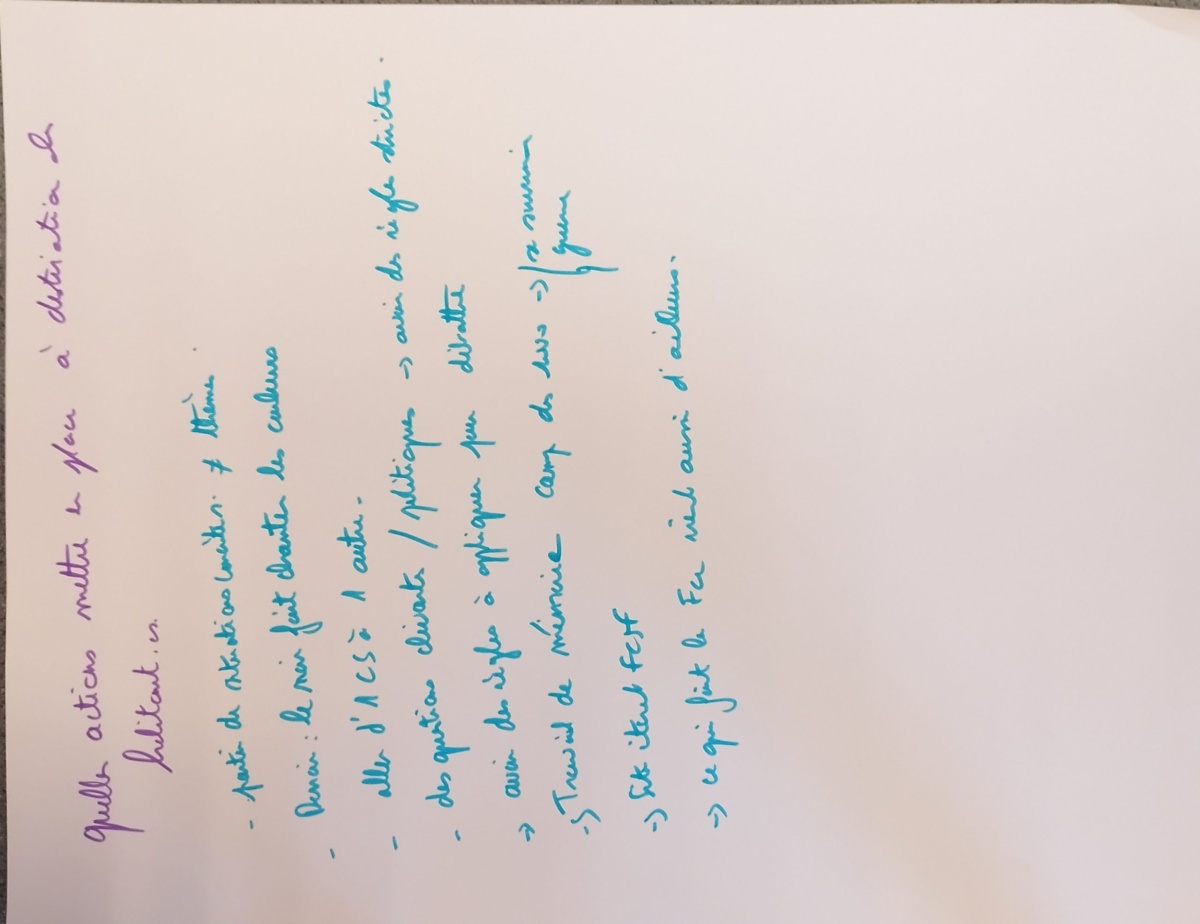 quelles actions mettre en place à destination des
habitant.es.
- partir de situations concrètes. ≠ thèmes.
Demain : le noir fait chanter les couleurs
-
- aller d'1 CS à 1 autre.
- des questions clivants / politiques -> avoir des règles strictes.
-> avoir des règles à appliquer pour débattre
-> Travail de mémoire camp de ->
guerre
-> Site FCSF
-> ce qui fait la Fce vient aussi d'ailleurs.